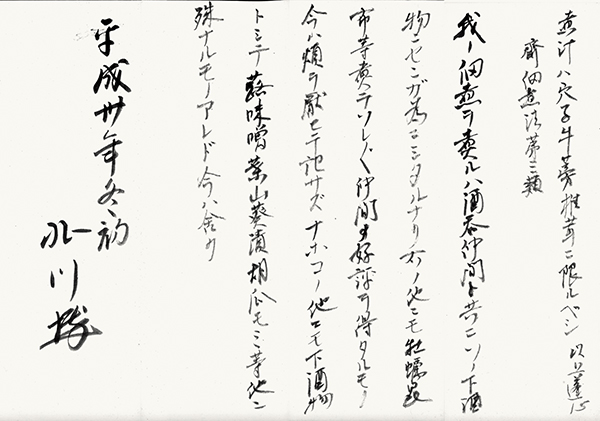 煮汁ハ穴子牛蒡椎茸ニ限ルベシ 以上蓮心
齋佃煮法第三類
我ノ佃煮ヲ煮ルハ酒呑仲間ト共ニソノ下酒
物ニセンガ為ニシタルナリ 右ノ他ニモ牡蠣昆
布等煮テソレ〲仲間ノ好評ヲ得タルモノ
今ハ煩ヲ厭ヒテ記サズ ナホコノ他ニモ下酒物
トシテ蕗味噌葉山葵漬胡瓜モミ等他ニ
殊ナルモノアレド今ハ舍ク
平成卅年冬初
川